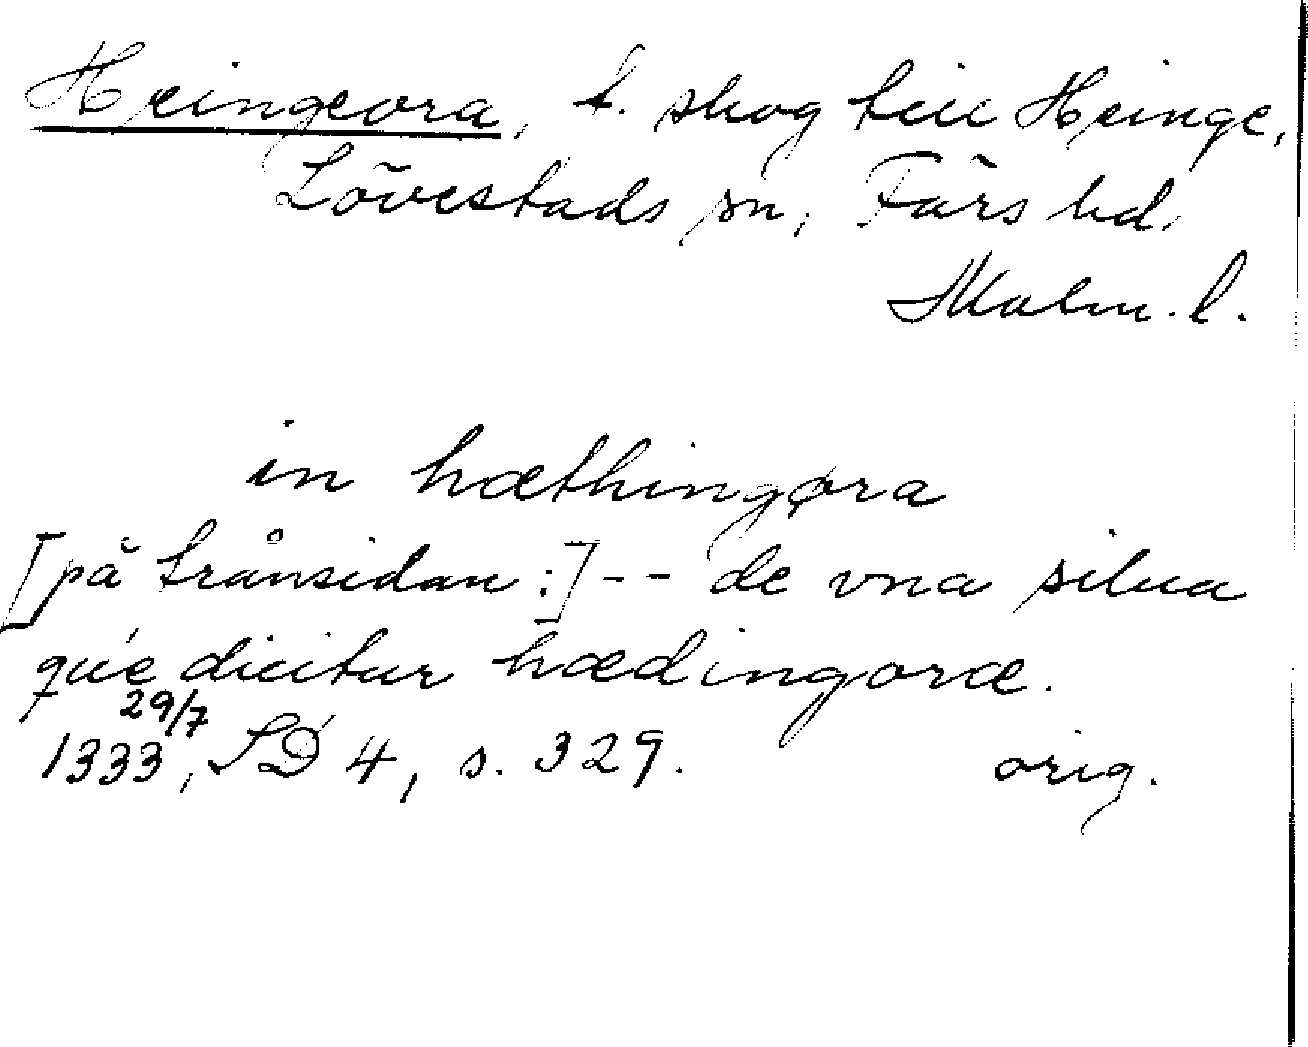 Heingeora, f. skog till Heinge,
Lövestads sn, Färs hd.
Malm. l.
in hæthingøra
[på frånsidan:] - - de vna silua
que dicitur hædingoræ.
29/7
1333, SD 4, s. 329. orig.